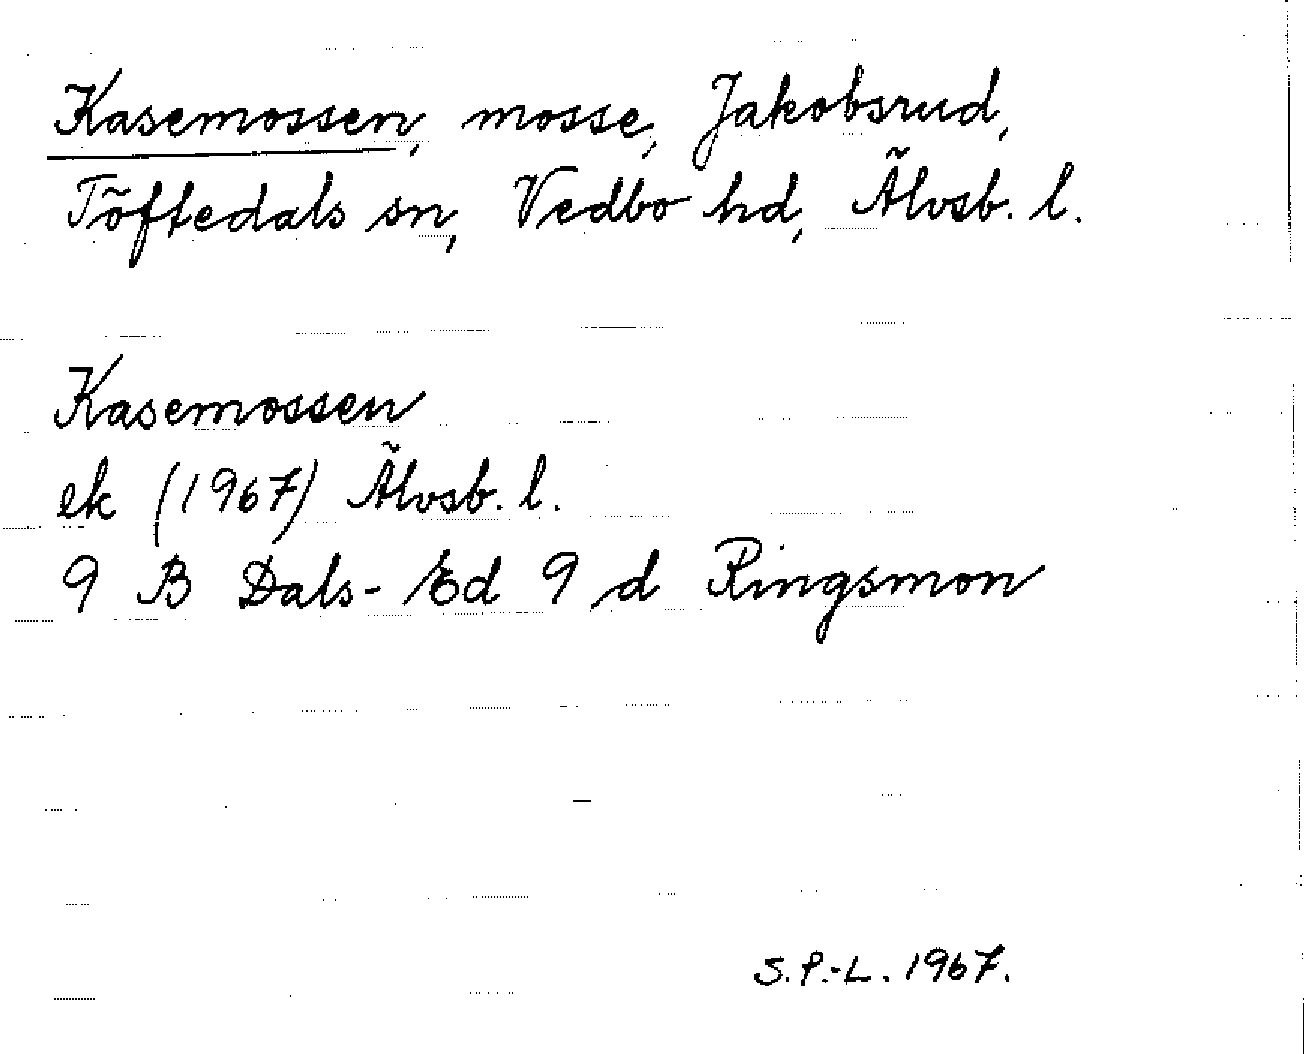 Kasemossen, mosse, Jakobsrud,
Töftedals sn, Vedbo hd, Älvsb. l.
Kasemossen
ek (1967) Älvsb. l.
9 B Dals-Ed 9 d Ringsmon
S.P.-L. 1967.